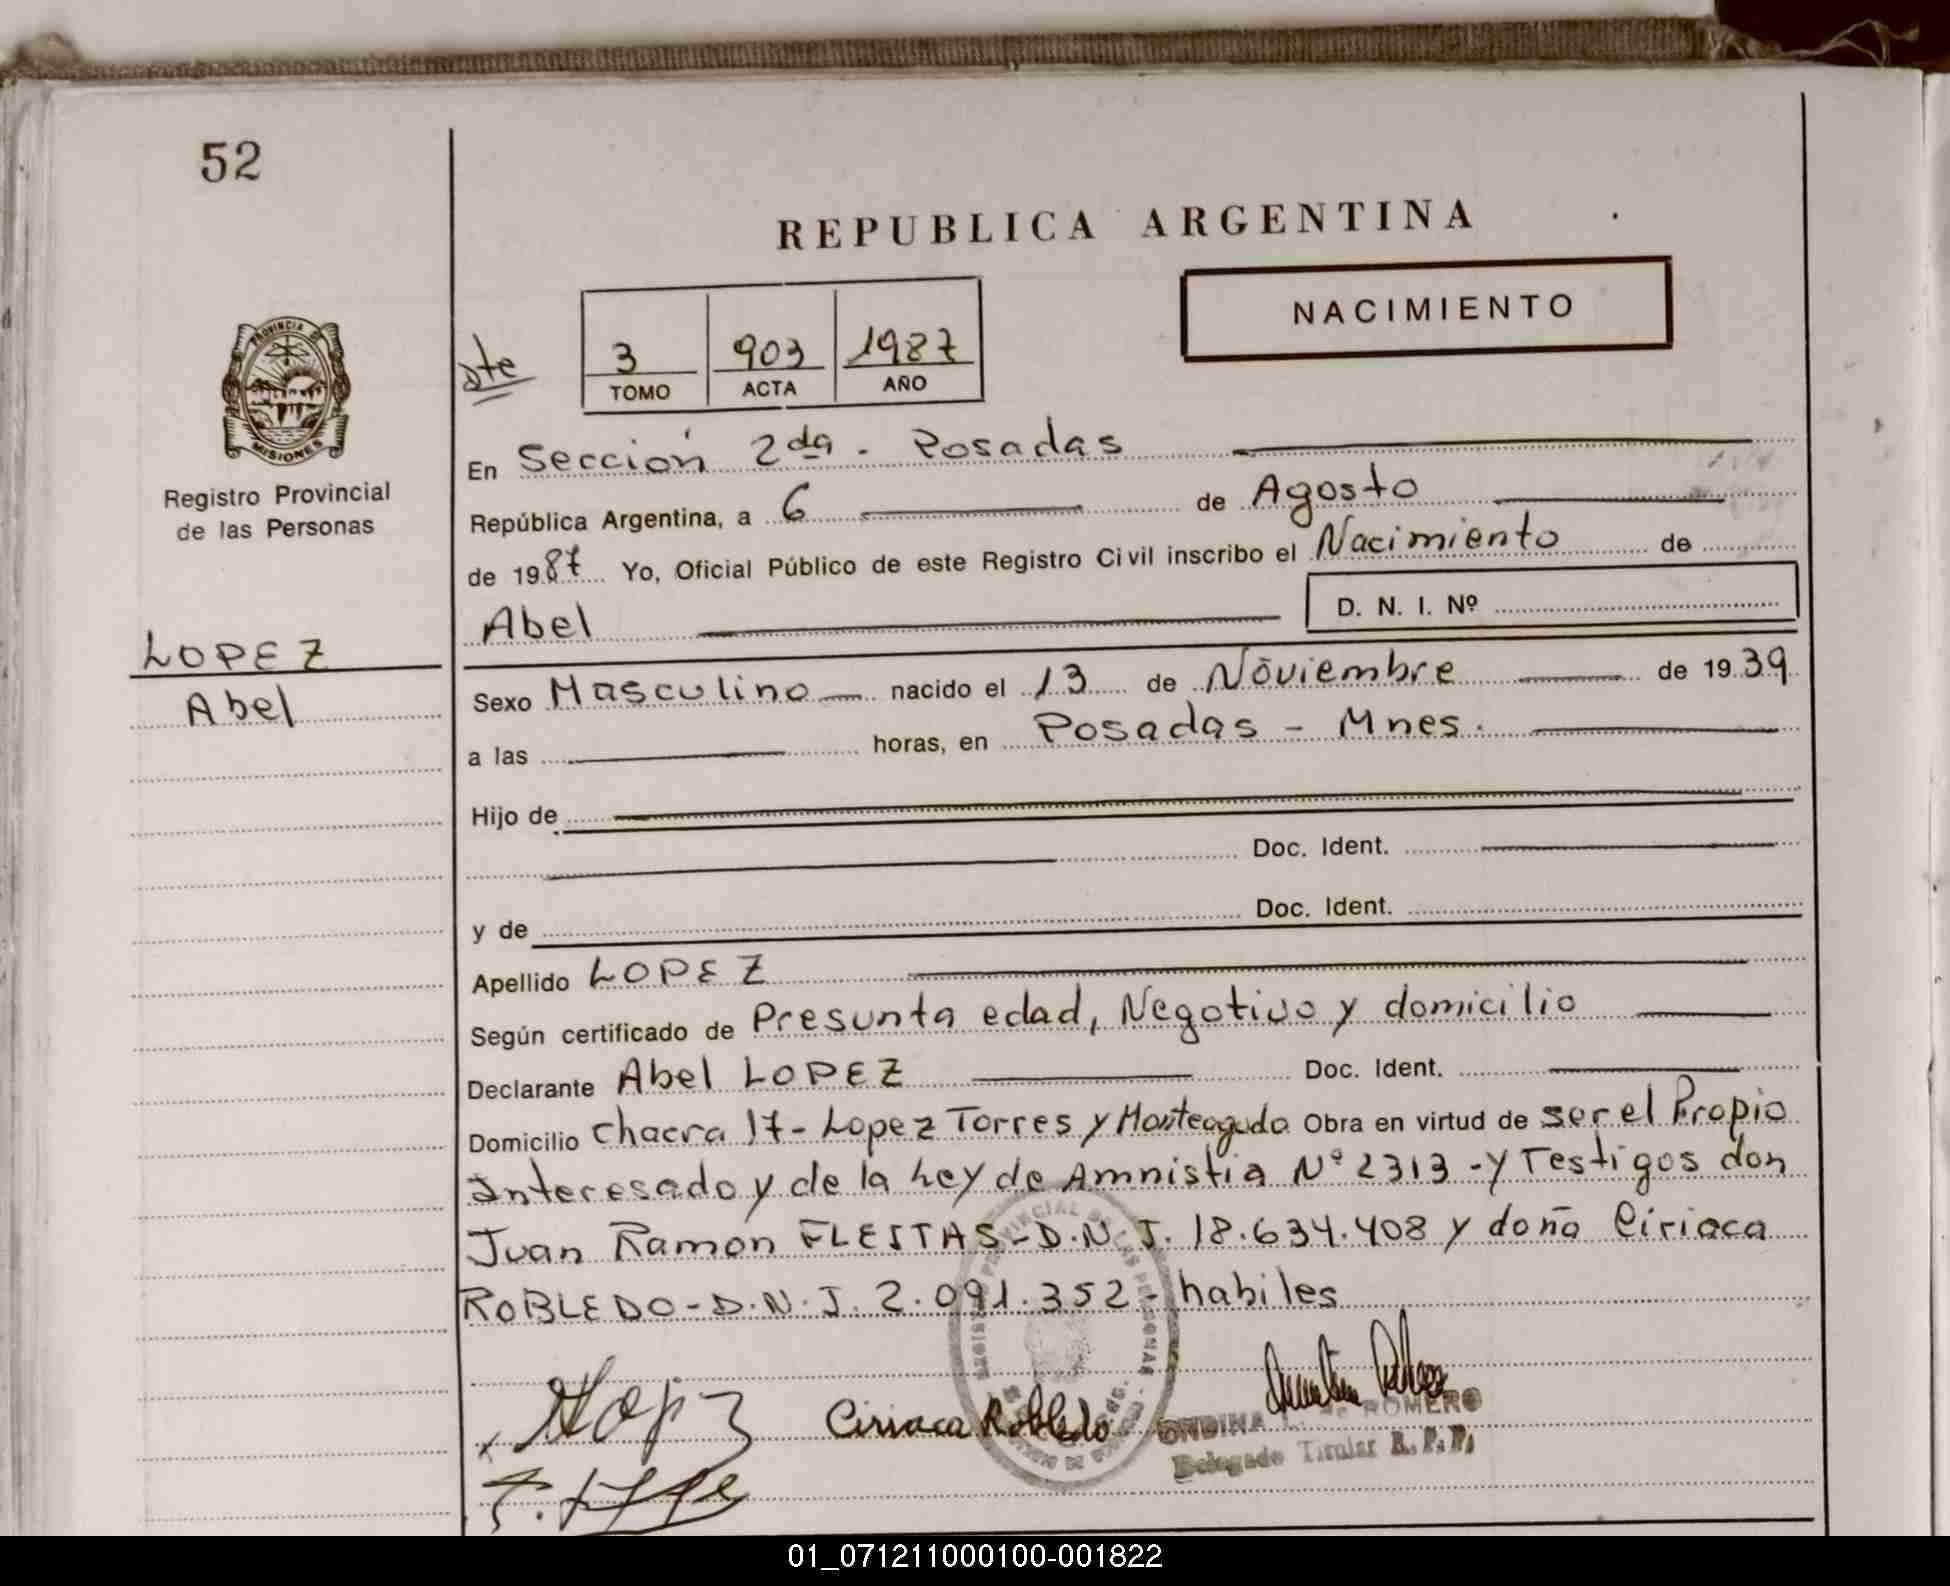 52
REPUBLICA ARGENTINA
NACIMIENTO
dte
3 903 1987
TOMO ACTA AÑO
PROVINCIA DE
MISIONES
Registro Provincial
de las Personas
En Sección 2da. Posadas
República Argentina, a 6 de Agosto
de 1987 Yo, Oficial Público de este Registro Civil inscribo el Nacimiento de
Abel D. N. I. Nº
LOPEZ
Abel
Sexo Masculino nacido el 13 de Noviembre de 1939
a las horas, en Posadas - Mnes.
Hijo de
Doc. Ident.
y de Doc. Ident.
Apellido LOPEZ
Según certificado de Presunta edad, Negativo y domicilio
Declarante Abel LOPEZ Doc. Ident.
Domicilio chacra 17- Lopez Torres y Monteagudo Obra en virtud de ser el Propio
Interesado y de la Ley de Amnistia Nº 2313 - y Testigos don
Juan Ramon FLEITAS - D.N.I. 18.634.408 y doña Ciriaca
ROBLEDO - D.N.I. 2.091.352 - habiles
Ciriaca Robledo
ONDINA L. de ROMERO
Delegado Titular R. P. P.
01_071211000100-001822